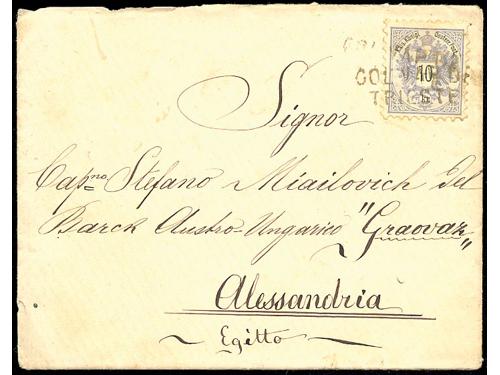 10
TRIESTE
Signor
Capno Stefano Miailovich Del
Barck Austro-Ungarico "Graovaz"
Alessandria
Egitto